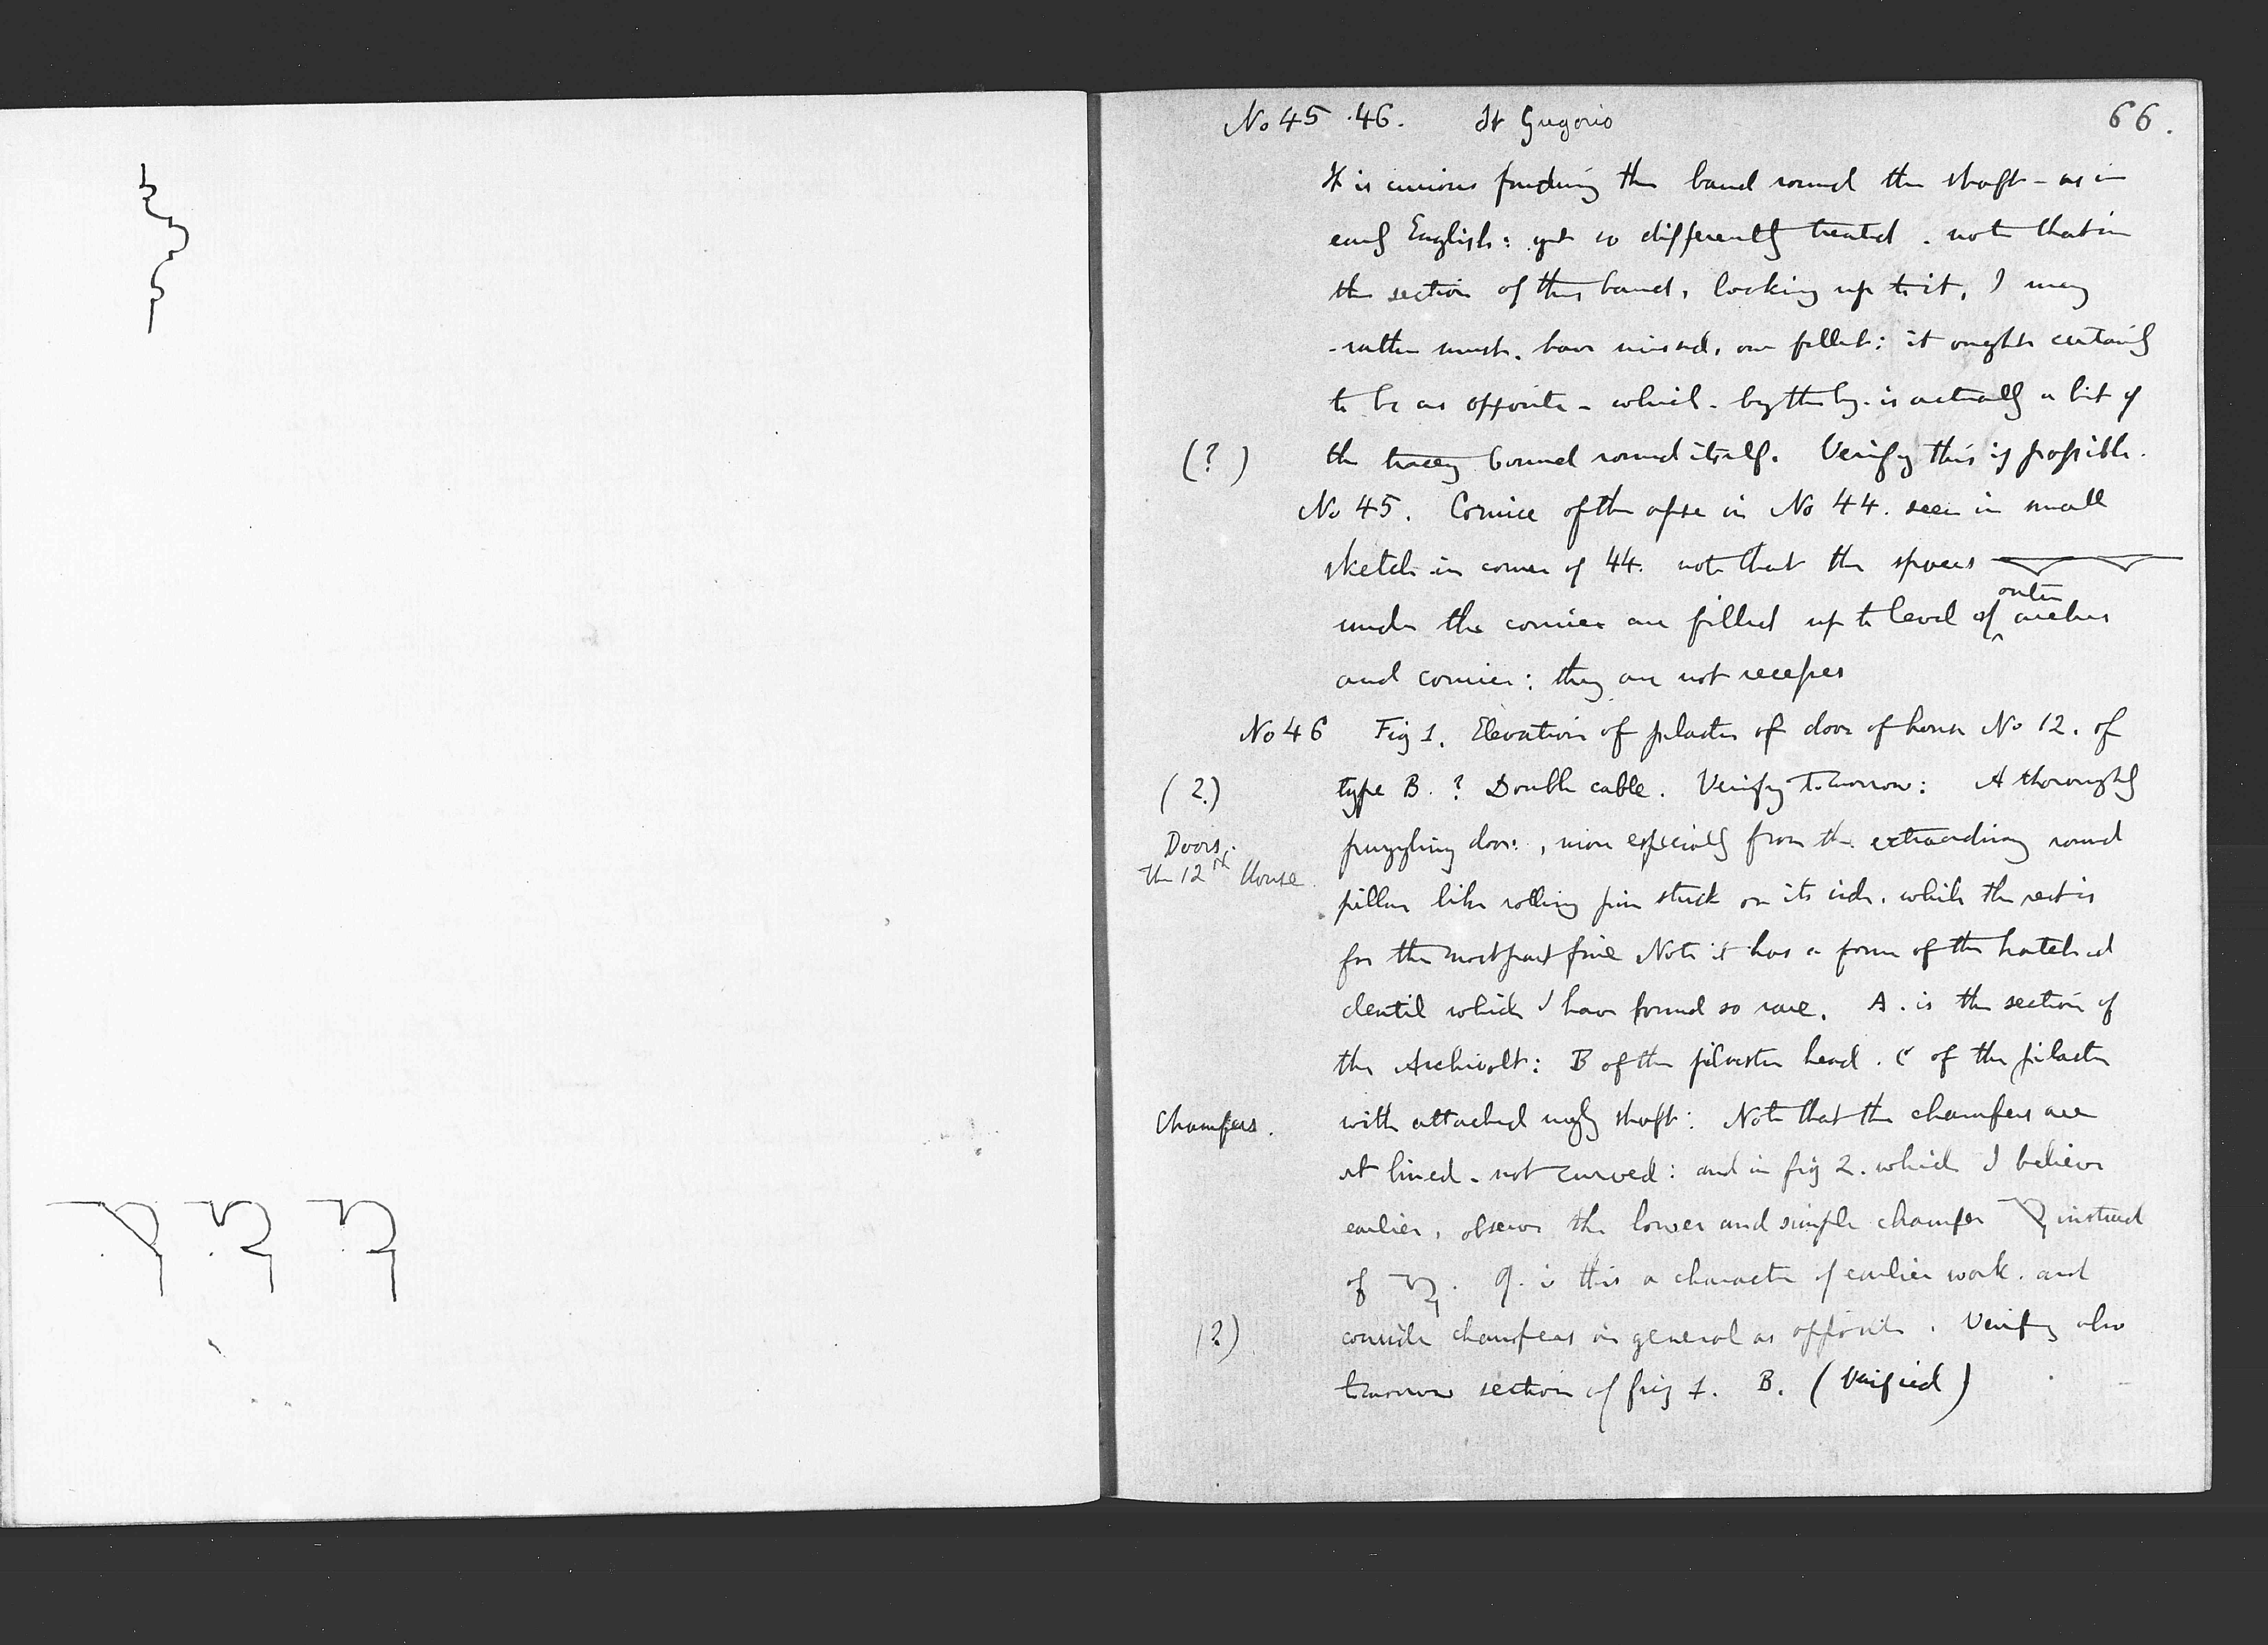 No 45 .46. St Gregorio 66.
It is curious finding the band round the shaft - as in
early English: yet so differently treated. note that in
the section of this band, looking up to it, I may
- rather must. have missed, one fillet: it ought certainly
to be as opposite - which - by the by - is actually a bit of
(?) the tracery bound round itself. Verify this if possible.
No 45. Cornice of the apse in No 44. seen in small
sketch in corner of 44. note that the spaces
under the cornice are filled up to level of outer arches
and cornice: they are not recesses
No 46 Fig 1. Elevation of pilaster of door of house No 12. of
(2.) type B. ? Double cable. Verify tomorrow: A thoroughly
Doors. puzzling door:, more especially from the extraordinary round
the 12th House. pillar like rolling pin stuck on its side. while the rest is
for the most part fine Note it has a form of the hatched
dentil which I have found so rare. A. is the section of
the Archivolt: B of the pilaster head. C of the pilaster
Chamfers. with attached ugly shaft: Note that the chamfers are
st lined - not curved: and in fig 2. which I believe
earlier, observe the lower and simple chamfer instead
of . Q. is this a character of earlier work. and
(?) consider chamfers in general as opposite. Verify also
tomorrow section of fig 1. B. (Verified)